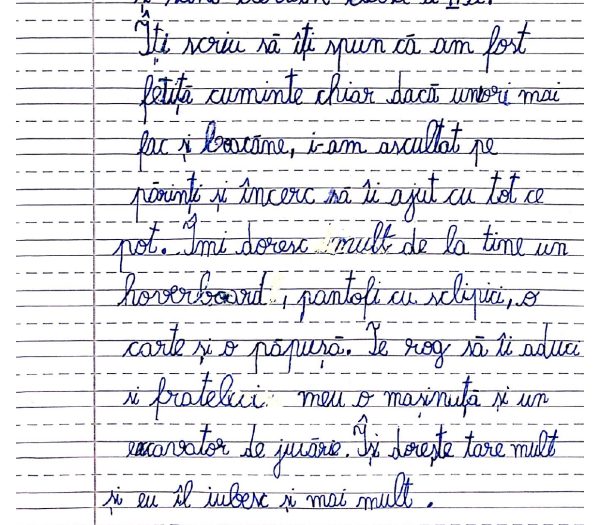 Îți scriu să îți spun că am fost
fetiță cuminte chiar dacă uneori mai
fac și boacăne, i-am ascultat pe
părinți și încerc să îi ajut cu tot ce
pot. Îmi doresc mult de la tine un
hoverboard, pantofi cu sclipici, o
carte și o păpușă. Te rog să îi aduci
și fratelui meu o mașinuță și un
excavator de jucărie. Își dorește tare mult
și eu îl iubesc și mai mult.